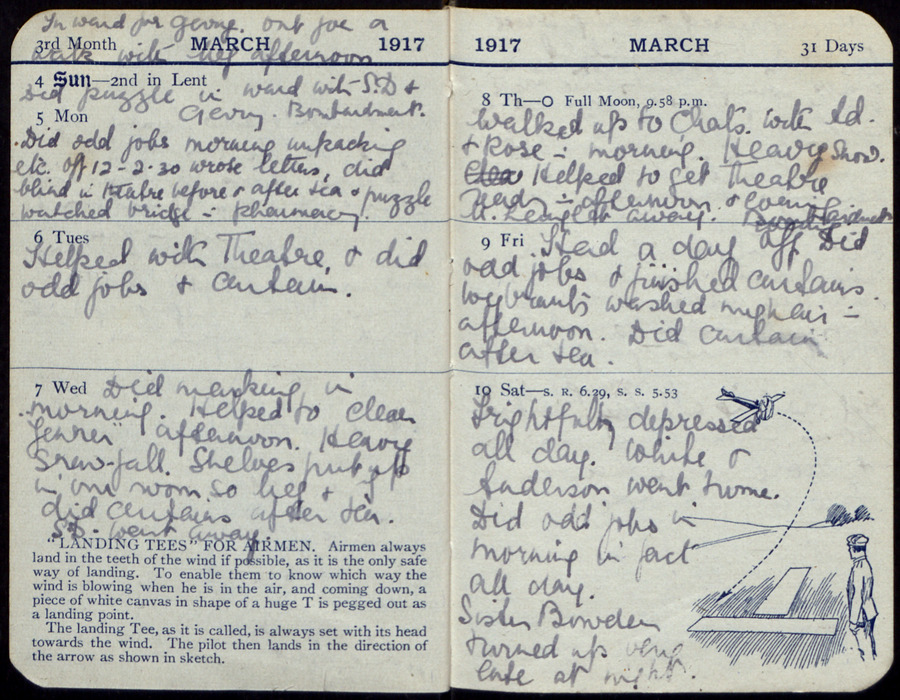 In ward for Genny. Out for a
3rd Month MARCH 1917
walk with Meg afternoon
4 Sun—2nd in Lent
Did puzzle in ward with S.D &
5 Mon Genny. Bombardment.
Did odd jobs morning unpacking
etc. Off 12-2.30 wrose letters, did
blind in theatre before & after tea & puzzle
watched bridge - Pharmacy.
6 Tues
Helped with Theatre, & did
odd jobs & curtain.
7 Wed Did marking in
morning. Helped to clean
"Jenner" afternoon. Heavy
Snow-fall. Shelves put up
in our room so Meg & I
did curtains after tea.
S.D. went away.
"LANDING TEES" FOR AIRMEN. Airmen always
land in the teeth of the wind if possible, as it is the only safe
way of landing. To enable them to know which way the
wind is blowing when he is in the air, and coming down, a
piece of white canvas in shape of a huge T is pegged out as
a landing point.
The landing Tee, as it is called, is always set with its head
towards the wind. The pilot then lands in the direction of
the arrow as shown in sketch.
1917 MARCH 31 Days
8 Th—O Full Moon, 9.58 p.m.
Walked up to Chats. with Ad.
& Rose - morning. Heavy Snow.
Helped to get Theatre
Ready - afternoon & evening
away.
9 Fri Had a day off Did
odd jobs & finished curtains.
washed my hair -
afternoon. Did curtain
after tea.
10 Sat—S. R. 6.29, S. S. 5.53
Frightfully depressed
all day. White &
Anderson went home.
Did odd jobs in
morning in fact
all day.
Sister Bowden
turned up very
late at night.